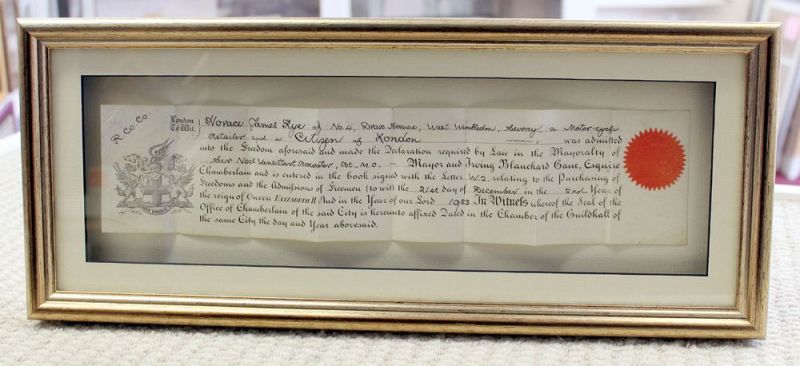 R Co Co
London
To Wit.
} Horace James Rye of No. 4, Avenue, West Wimbledon, Surrey, a Motor-cycle
Retailer and a Citizen of London —, was admitted
into the Freedom aforesaid and made the Declaration required by Law in the Mayoralty of
Sir Noel Vansittart Bowater, Bt., M.C., — Mayor and Irving Blanchard Gane, Esquire
Chamberlain and is entered in the book signed with the Letter W.2 relating to the Purchasing of
Freedoms and the Admissions of Freemen (to wit) the 21st day of December in the 2nd Year of
the reign of Queen ELIZABETH II And in the Year of our Lord 1953 In Witness whereof the Seal of the
Office of Chamberlain of the said City is hereunto affixed Dated in the Chamber of the Guildhall of
the same City the day and Year abovesaid.